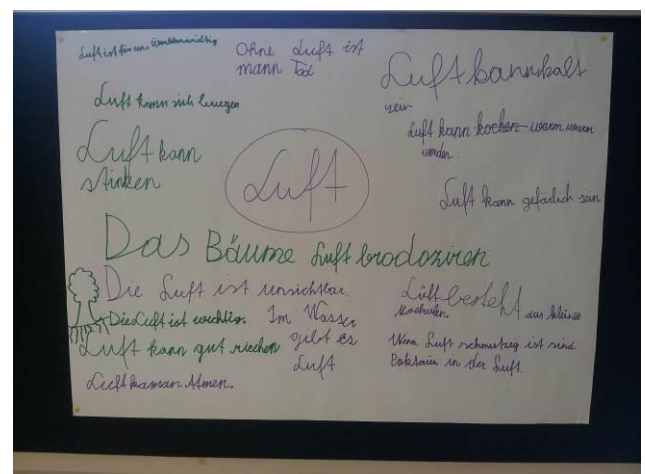 Luft ist für uns
Ohne Luft ist
mann Tod
Luft kann kalt
sein
Luft kann sich
Luft kann kochen warm warm
werden.
Luft kann
stinken
Luft
Luft kann gefärlich sein
Das Bäume Luft brodoziren
Die Luft ist unsichtbar.
Luft besteht aus kleines
Die Luft ist wichtig.
Im Wasser
gibt es
Luft
Luft kann gut riechen
Wenn Luft schmutzig ist sind
Bakterien in der Luft.
Luft kaman Atmen.